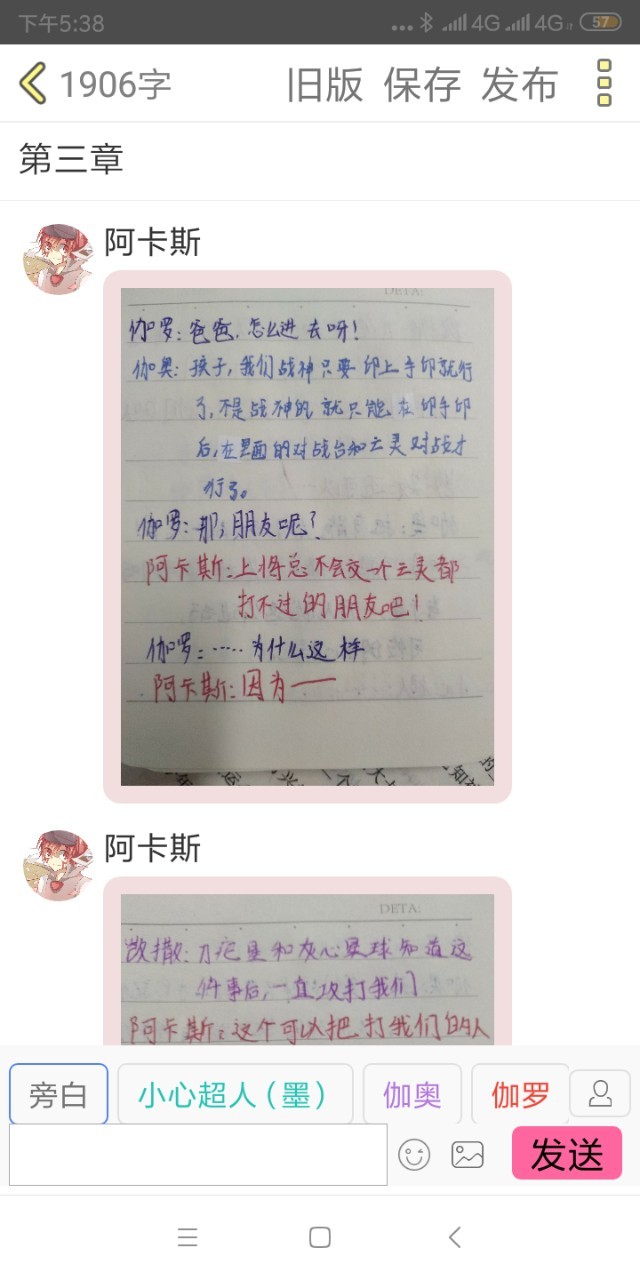 下午5:38
4G 4G 57
1906字 旧版 保存 发布
第三章
阿卡斯
DETA:
伽罗:爸爸,怎么进去呀!
伽奥:孩子,我们战神只要印上手印就行
了,不是战神的就只能在印手印
后,在里面的对战台和云灵对战才
行了。
伽罗:那,朋友呢?
阿卡斯:上将总不会交一个云灵都
打不过的朋友吧!
伽罗:……为什么这样
阿卡斯:因为——
阿卡斯
DETA:
撒:星和灰心星球知道这
件事后,一直攻打我们
阿卡斯:这个可以把打我们的人
旁白 小心超人(墨) 伽奥 伽罗
发送